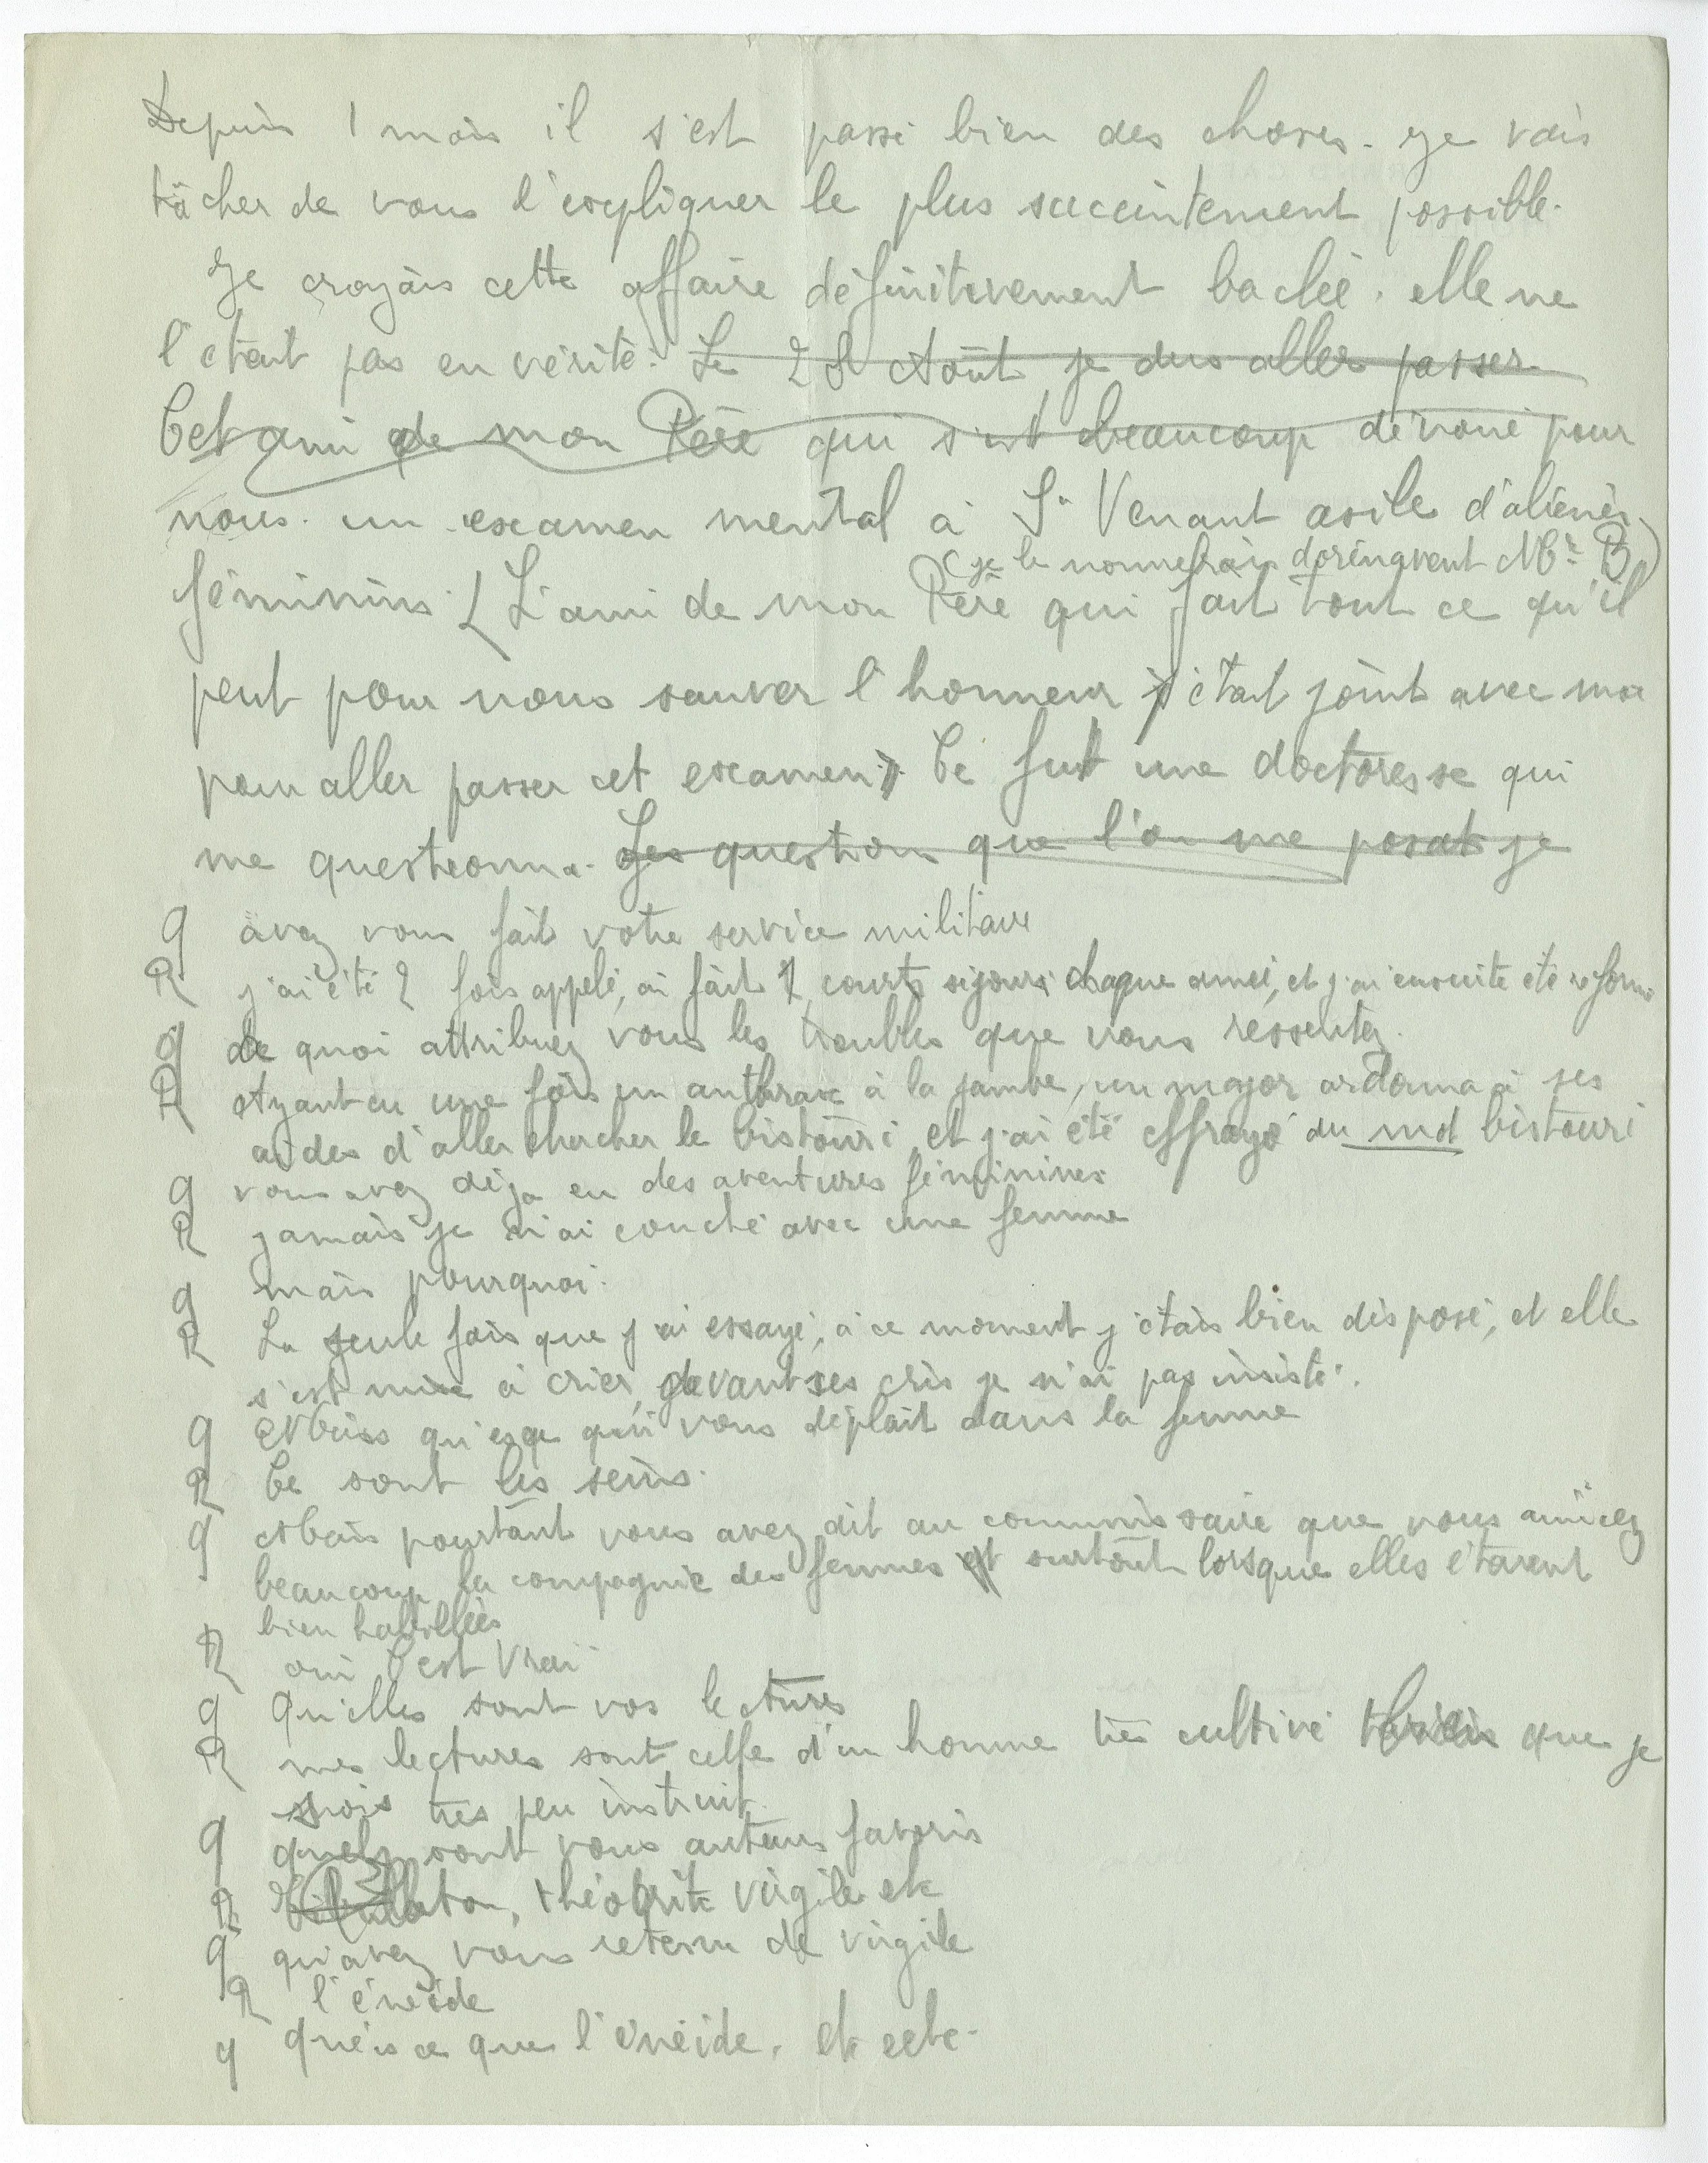 Depuis 1 mois il s'est passé bien des choses. Je vais
tâcher de vous l'expliquer le plus succintement possible.
Je croyais cette affaire définitivement baclée. elle ne
l'était pas en vérité. Le 28 Août je dus aller passer
Cet ami de mon Père qui s'est beaucoup dévoué pour
nous. un examen mental à St Venant asile d'aliénés
(je le nommerais dorénavent Mr B)
féminins. (L'ami de mon Père qui fait tout ce qu'il
peut pour nous sauver l'honneur s'était joint avec moi
pour aller passer cet examen). Ce fut une doctoresse qui
me questionna. Les question que l'on me posat je
q avez vous fait votre service militaire
R j'ai été 2 fois appelé, ai fait 2 courts séjours chaque année, et j'ai ensuite été reformé
q de quoi attribuez vous les troubles que vous ressentez.
R Ayant eu une fois un anthrax à la jambe, un major ordonna à ses
aides d'aller chercher le bistouri et j'ai été effrayé du mot bistouri
q vous avez déja eu des aventures féminines
R jamais je n'ai couché avec une femme
q mais pourquoi.
R La seule fois que j'ai essayé, à ce moment j'étais bien disposé, et elle
s'est mise à crier, devant ses cris je n'ai pas insisté.
q Mais qu'esqe qui vous déplait dans la femme
R Ce sont les seins.
q Mais pourtant vous avez dit au commissaire que vous aimiez
beaucoup la compagnie des femmes et surtout lorsque elles étaient
bien habillées
R oui C'est vrai
q Qu'elles sont vos lectures
R mes lectures sont celle d'un homme très cultivé que je
sois très peu instruit.
q quels sont vous auteurs favoris
R théocrite virgile etc
q qu'avez vous retenu de virgile
R l'énéide
q qu'es ce que l'énéide. etc ectc.